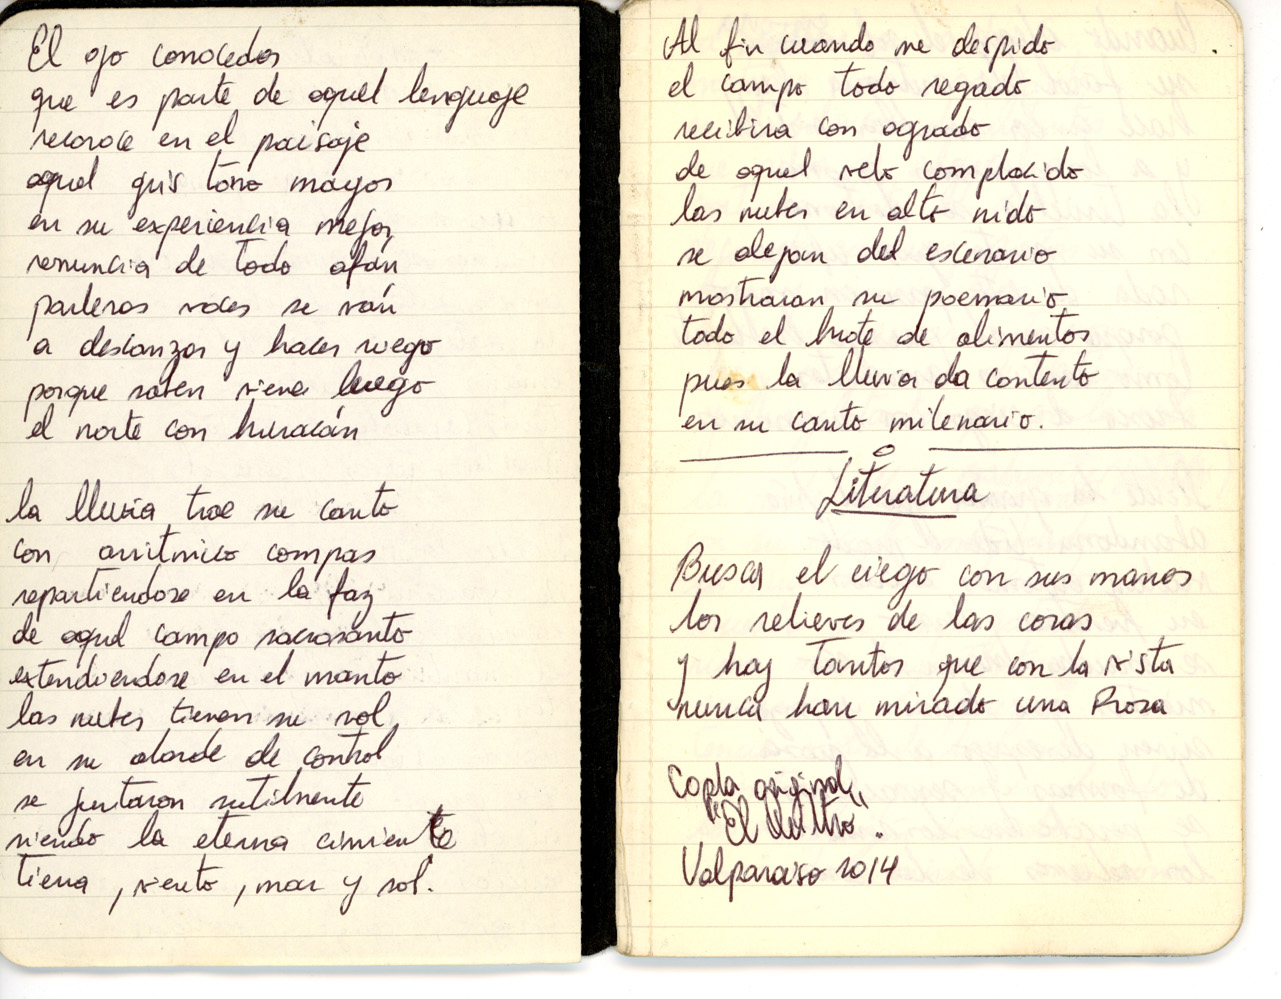 El ojo conocedor
que es parte de aquel lenguaje
reconoce en el paisaje
aquel gris tono mayor
en su experiencia mejor
renuncia de todo afán
parleras voces se ván
a descanzar y hacer ruego
porque saben viene luego
el norte con huracán
la lluvia trae su canto
con arritmico compas
repartiendose en la faz
de aquel campo sacrosanto
extendiendose en el manto
las nubes tienen su rol
en su alarde de control
se juntaron sutilmente
siendo la eterna cimiente
tierra, viento, mar y sol.
Al fin cuando me despido
el campo todo regado
recibira con agrado
de aquel velo complacido
las nubes en alto nido
se alejan del escenario
mostraran su poemario
todo el brote de alimentos
pues la lluvia da contento
en su canto milenario.
Literatura
Busca el ciego con sus manos
los relieves de las cosas
y hay tantos que con la vista
nunca han mirado una Prosa
Copla original
"El
Valparaiso 2014